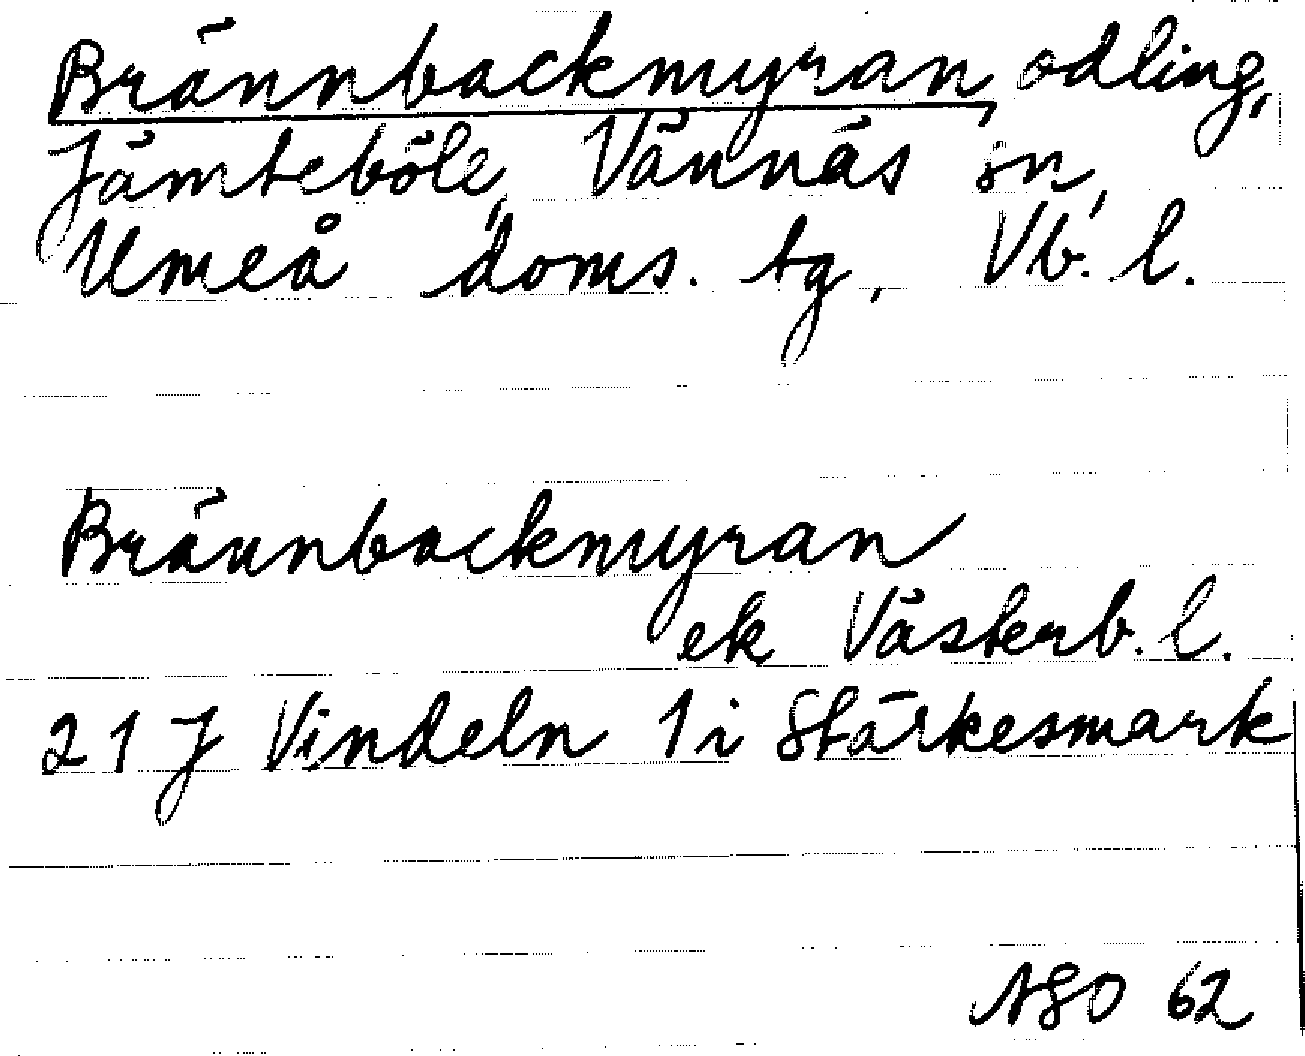 Brännbackmyran, odling,
Jämteböle, Vännäs sn,
Umeå doms. tg, Vb. l.
Brännbackmyran
ek Västerb. l.
21 J Vindeln 1 i Stärkesmark
ASO 62